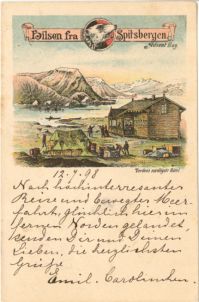 Hilsen fra Spitsbergen.
Advent Bay
Verdens nordligste Hotel
12.7.98
Nach hochinteressanter
Reise und bewegter Meer-
fahrt, glücklich hier im
fernen Norden gelandet,
senden Dir und Deinen
Lieben, die herzlichsten
Grüße
Emil. Carolinchen.